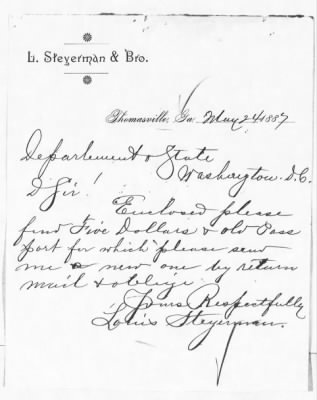 L. Steyerman & Bro.
Thomasville, Ga. May 24 1887
Departement o State
Washington. D.C.
D Sir!
Enclosed please
find Five Dollars & old Pass
port for which please send
me a new one by return
mail & oblige
Yours Respectfully
Louis Steyerman.